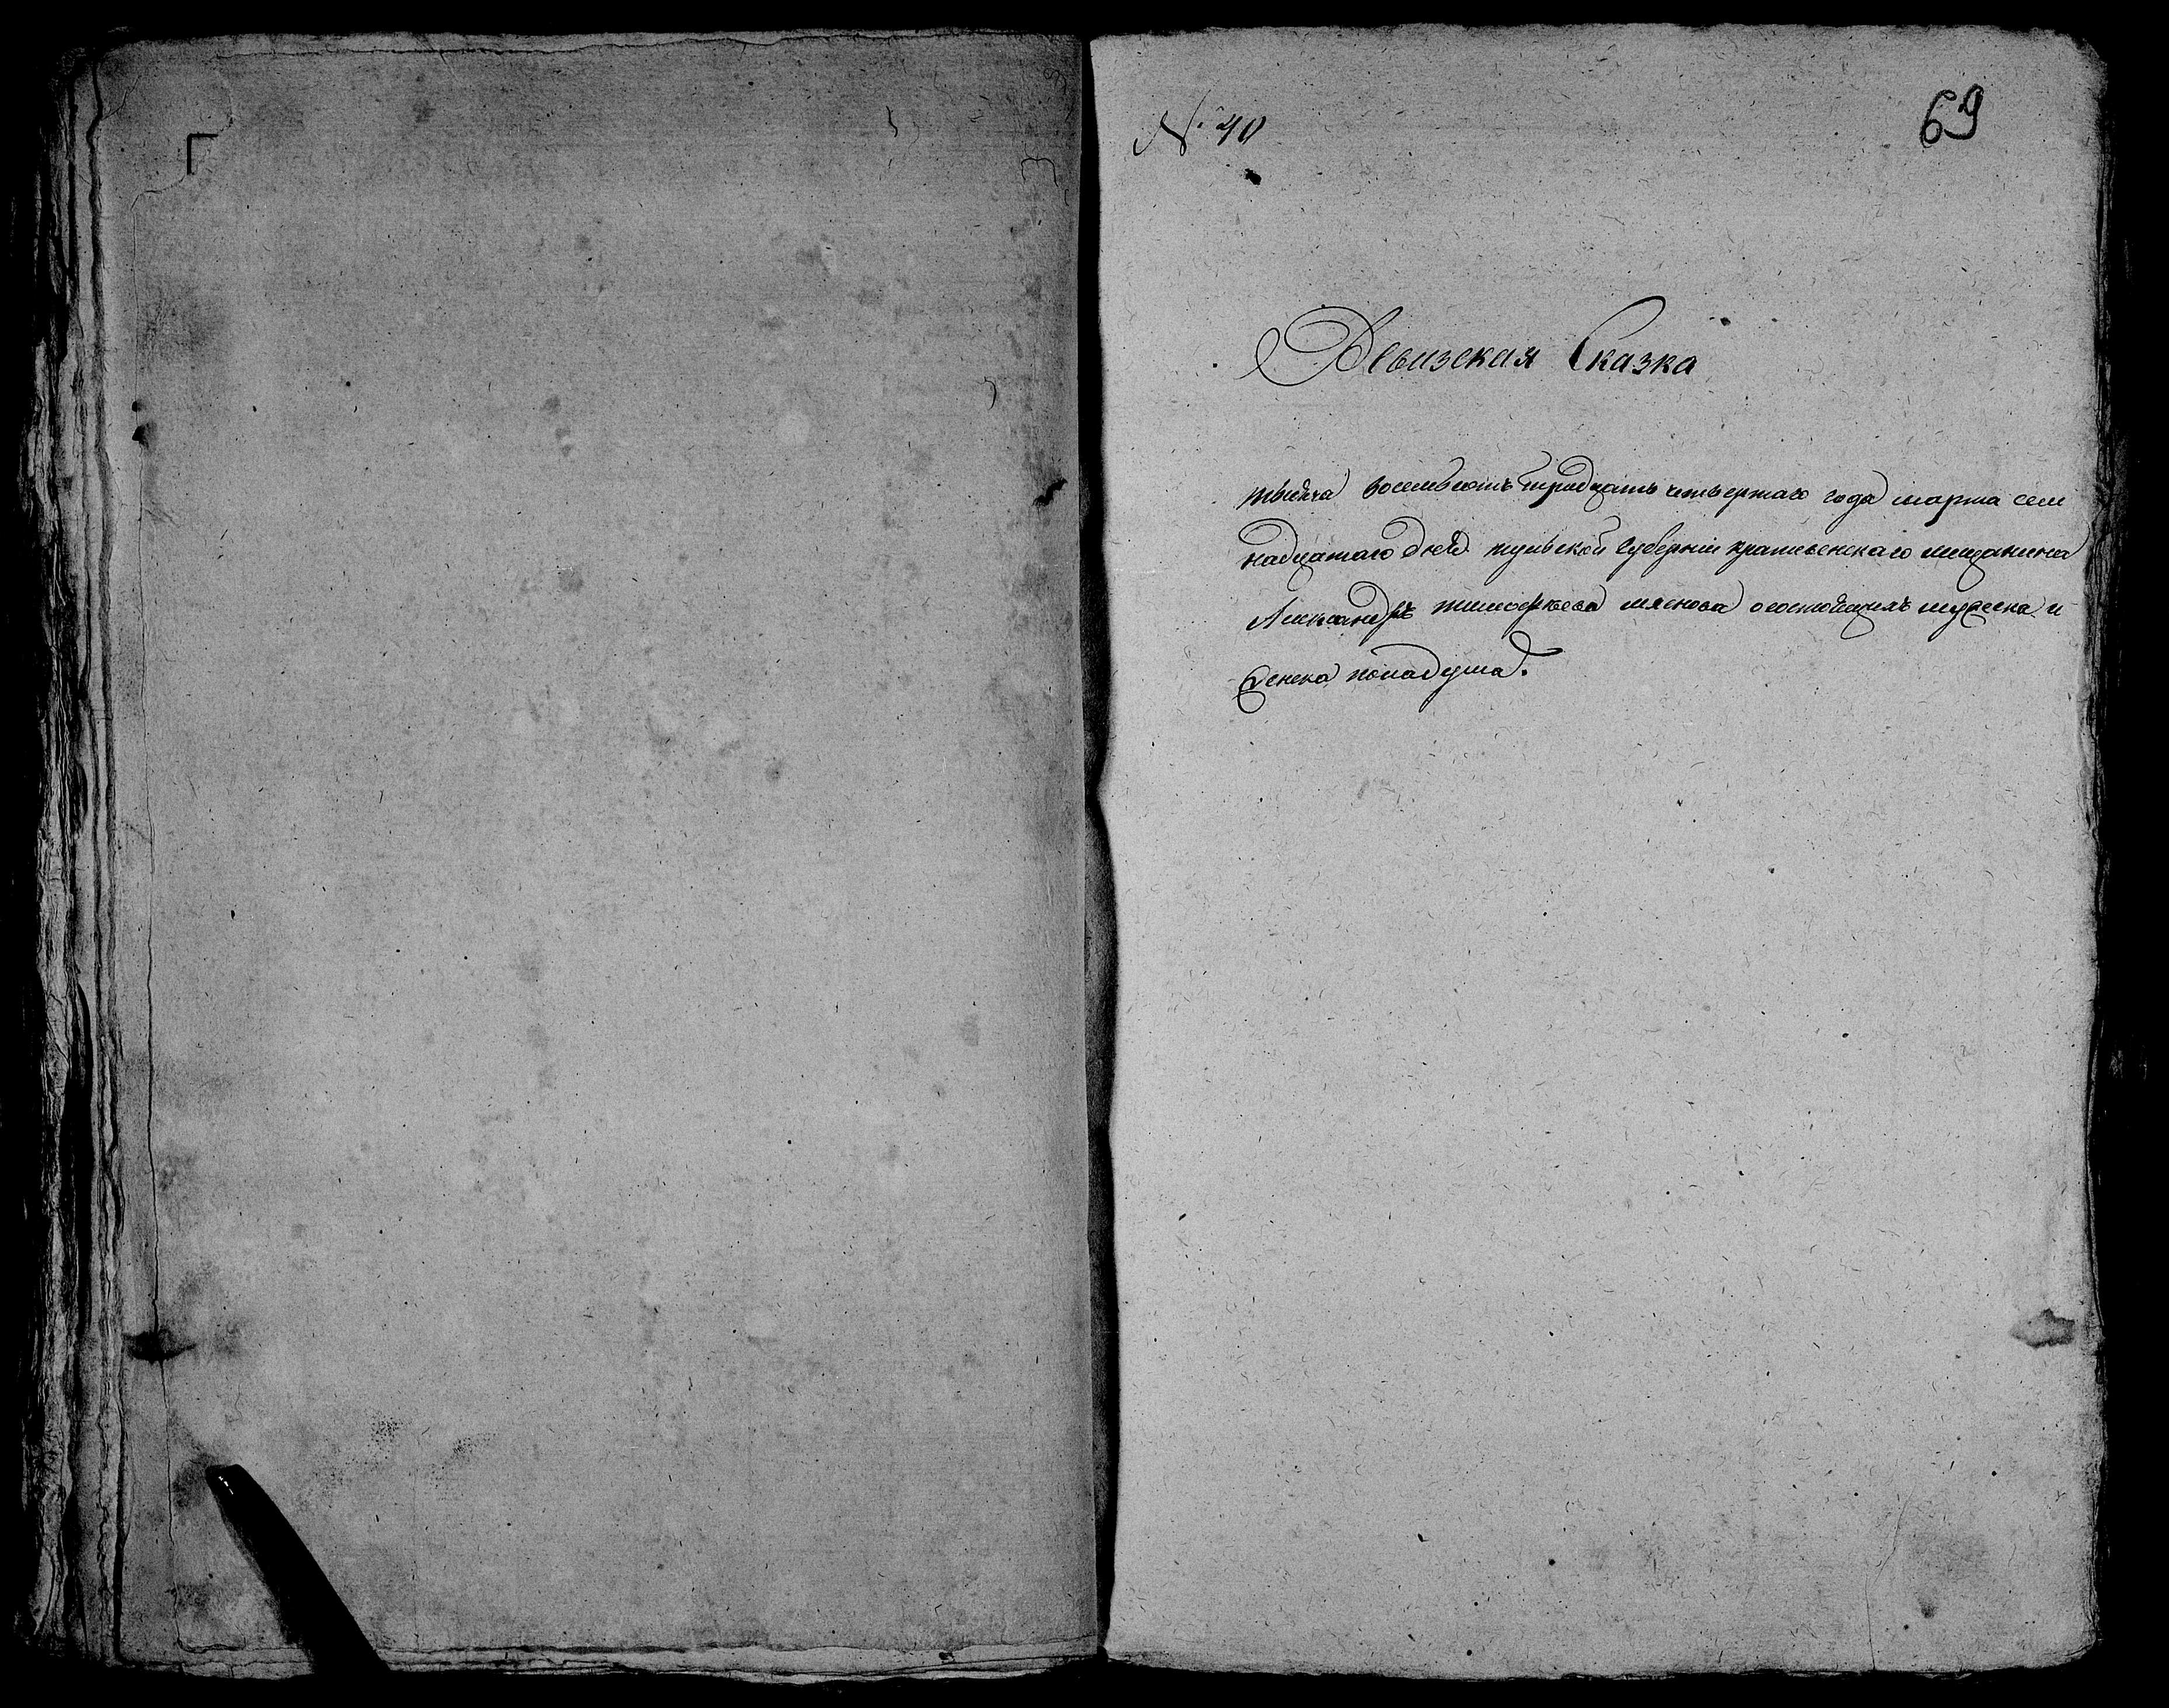 Г
№ 40
69
Ревизская Сказка
тысеча восемьсотъ тридцать четвертаго года марта сем
надцатаго дня тульской губернии крапивенскаго мещанина
Александръ тимофеева мяснова осостоящихъ мужеска и
женска пола душа.